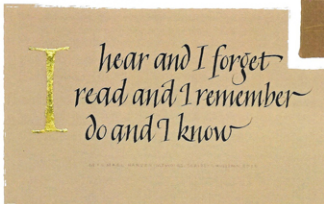 I hear and I forget
read and I remember
do and I know